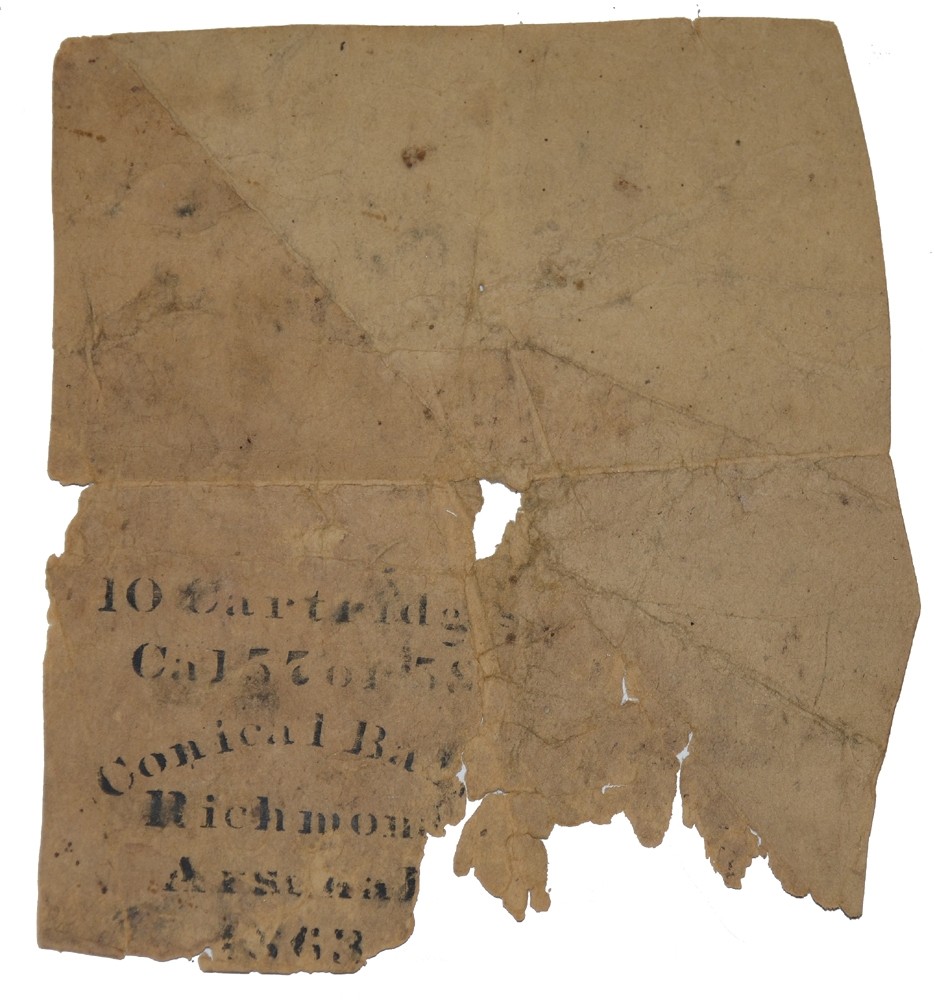 10 Cartridges
Cal 57 or 58
Conical Ba
Richmon
Arsenal
1863